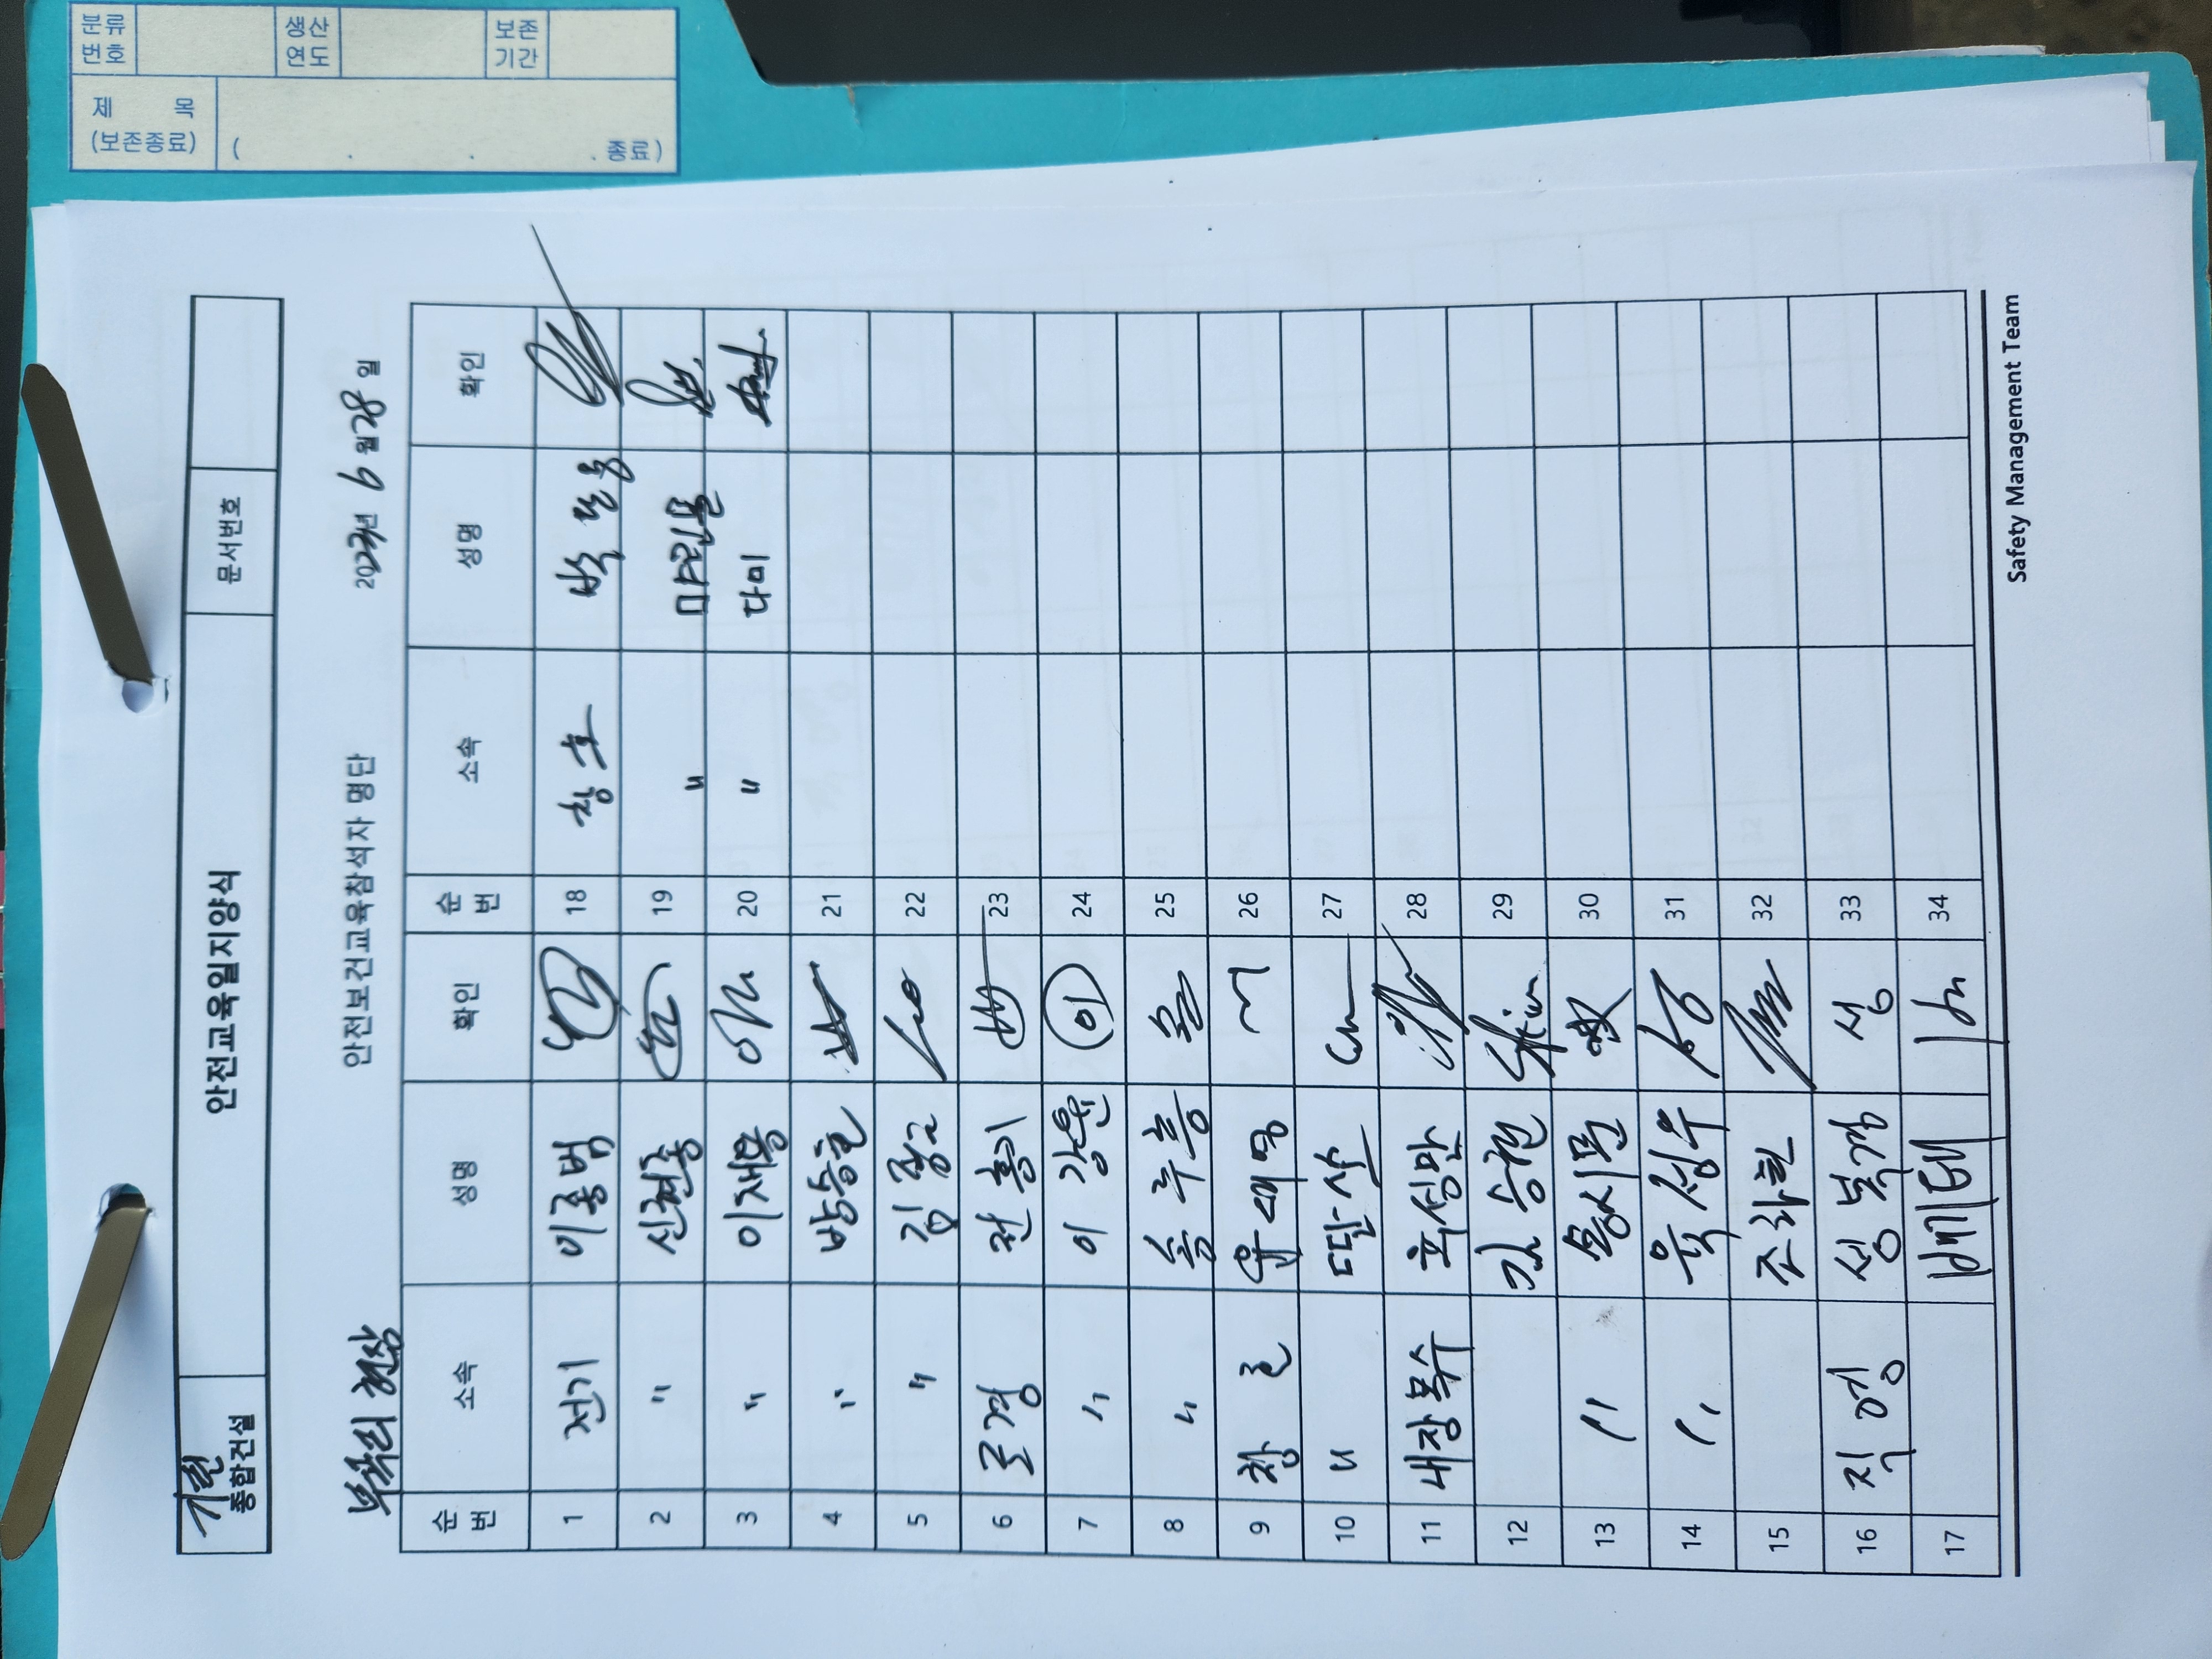 기린
종합건설 안전교육일지양식 문서번호
부곡리 현장 안전보건교육참석자 명단 2023년 6월 28일
순번 소속 성명 확인 순번 소속 성명 확인
1 전기 이종범 18 창호
2 〃 신현종 19 〃 마린몰
3 〃 이재용 20 〃 다미
4 〃 방승훈 21
5 〃 김종근 22
6 조경 전흥기 23
7 〃 이강윤 이 24
8 〃 송루흥 송 25
9 창호 윤대명 26
10 〃 딴산 27
11 내장목수 홍성만 28
12 김승현 29
13 〃 송시문 30
14 〃 육성우 31
15 조화현 32
16 직영 성복경 성 33
17 배기태 34
Safety Management Team
분류번호
생산연도
보존기간
제 목
(보존종료)
( . . . 종료)